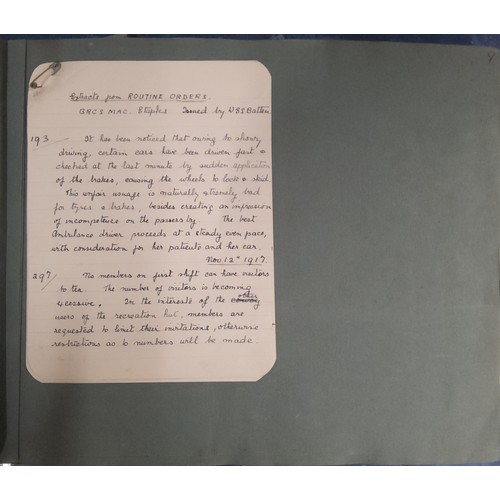 Extracts from ROUTINE ORDERS.
BRCS MAC. Etaples Issued by
193/ It has been noticed that owing to showy
driving, certain cars have been driven fast &
checked at the last minute by sudden application
of the brakes, causing the wheels to lock & skid.
This unfair usuage is naturally extremely bad
for tyres & brakes, besides creating an impression
of incompetence on the passers by. The best
Ambulance driver proceeds at a steady even pace,
with consideration for her patients and her car.
Nov. 12th 1917.
297/ No members on first shift can have visitors
to tea. The number of visitors is becoming
excessive. In the interests of the other convoy
users of the recreation hut, members are
requested to limit their invitations, otherwise
restrictions as to numbers will be made.